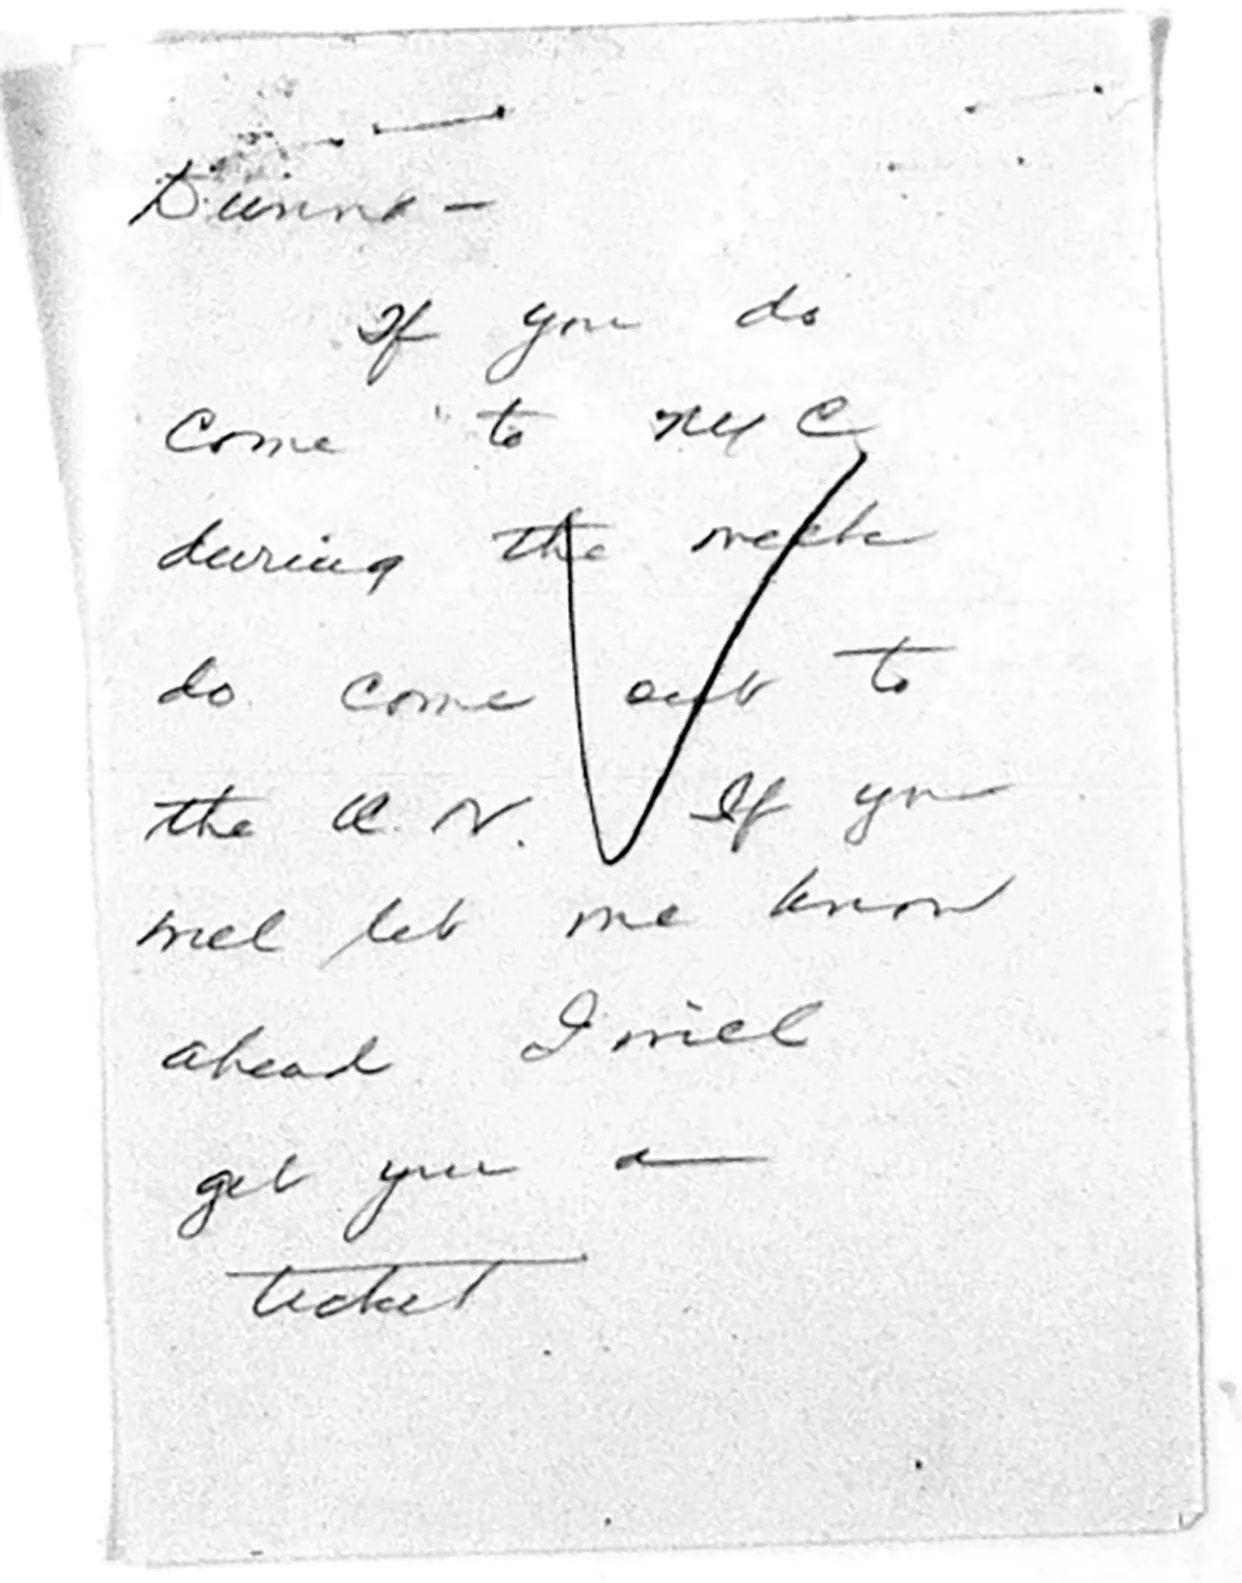 If you do
come to NYC
during the week
do come out to
the U. N. If you
will let me know
ahead I will
get you a
ticket